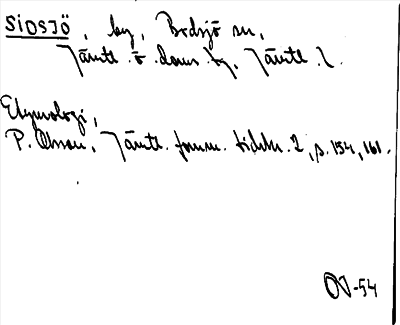 SIDSJÖ, by, Bodsjö sn,
Jämtl. ö. doms. tg. Jämtl. l.
Etymologi,
P. Olsson, Jämtl. fornm. tidskr. 2, s. 154, 161.
OV-54